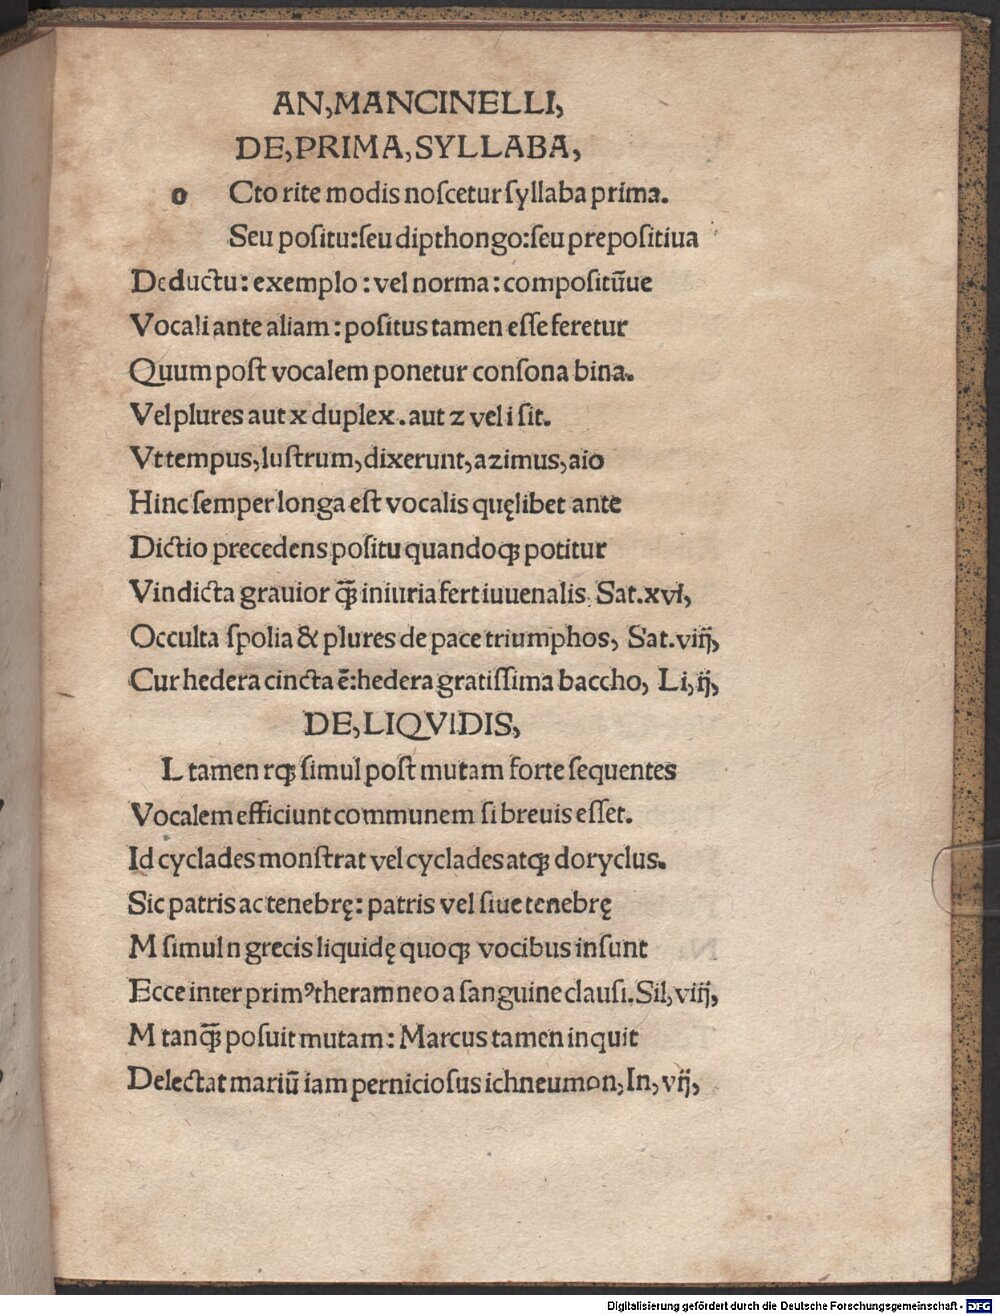 AN,MANCINELLI,
DE,PRIMA,SYLLABA,
o Cto rite modis noſcetur ſyllaba prima.
Seu poſitu:ſeu dipthongo:ſeu prepoſitiua
Deductu: exemplo : vel norma : compoſitũue
Vocali ante aliam : poſitus tamen eſſe feretur
Quum poſt vocalem ponetur conſona bina.
Vel plures aut x duplex. aut z vel i ſit.
Vt tempus, luſtrum, dixerunt, azimus, aio
Hinc ſemper longa eſt vocalis quęlibet ante
Dictio precedens poſitu quandoqꝫ potitur
Vindicta grauior q̃ꝫ iniuria fert iuuenalis. Sat.xvi,
Occulta ſpolia & plures de pace triumphos, Sat.viij,
Cur hedera cincta ẽ:hedera gratiſſima baccho, Li,ij,
DE,LIQVIDIS,
L tamen rqꝫ ſimul poſt mutam forte ſequentes
Vocalem efficiunt communem ſi breuis eſſet.
Id cyclades monſtrat vel cyclades atqꝫ doryclus.
Sic patris ac tenebrę: patris vel ſiue tenebrę
M ſimul n grecis liquidę quoqꝫ vocibus inſunt
Ecce inter primꝰ theramneo a ſanguine clauſi.Sil,viij,
M tanq̃ꝫ poſuit mutam : Marcus tamen inquit
Delectat mariũ iam pernicioſus ichneumon,In,vij,
Digitalisierung gefördert durch die Deutsche Forschungsgemeinschaft - DFG